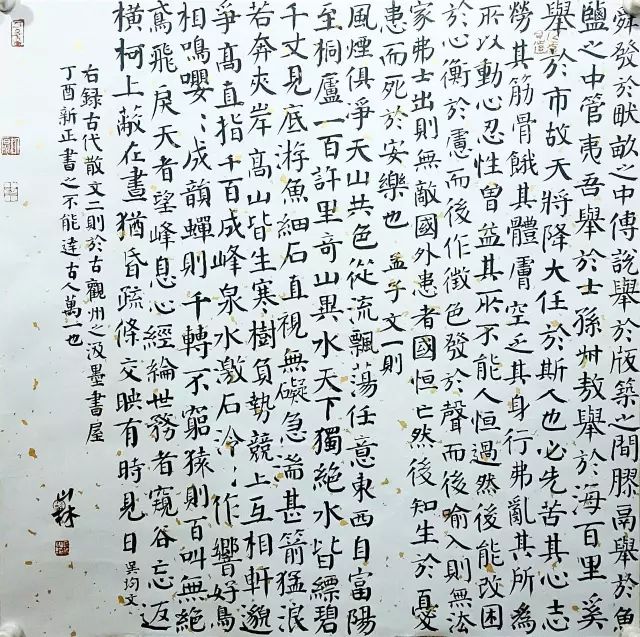 舜發於畎畝之中傅說舉於版築之間膠鬲舉於魚
鹽之中管夷吾舉於士孫叔敖舉於海百里奚
舉於市故天將降大任於斯人也必先苦其心志
勞其筋骨餓其體膚空乏其身行弗亂其所為
所以動心忍性曾益其所不能人恒過然後能改困
於心衡於慮而後作徵色發於聲而後喻入則無法
家弗士出則無敵國外患者國恒亡然後知生於憂
患而死於安樂也 孟子文一則
風煙俱淨天山共色從流飄蕩任意東西自富陽
至桐廬一百許里奇山異水天下獨絕水皆縹碧
千丈見底游魚細石直視無礙急湍甚箭猛浪
若奔夾岸高山皆生寒樹負埶競上互相軒邈
爭高直指千百成峰泉水激石泠ː作響好鳥
相鳴嚶ː成韻蟬則千轉不窮猿則百叫無絕
鳶飛戾天者望峰息心經綸世務者窺谷忘返
橫柯上蔽在晝猶昏疏條交映有時見日 吳均文
右録古代散文二則於古觀州之汲墨書屋
丁酉新正書之不能達古人萬一也